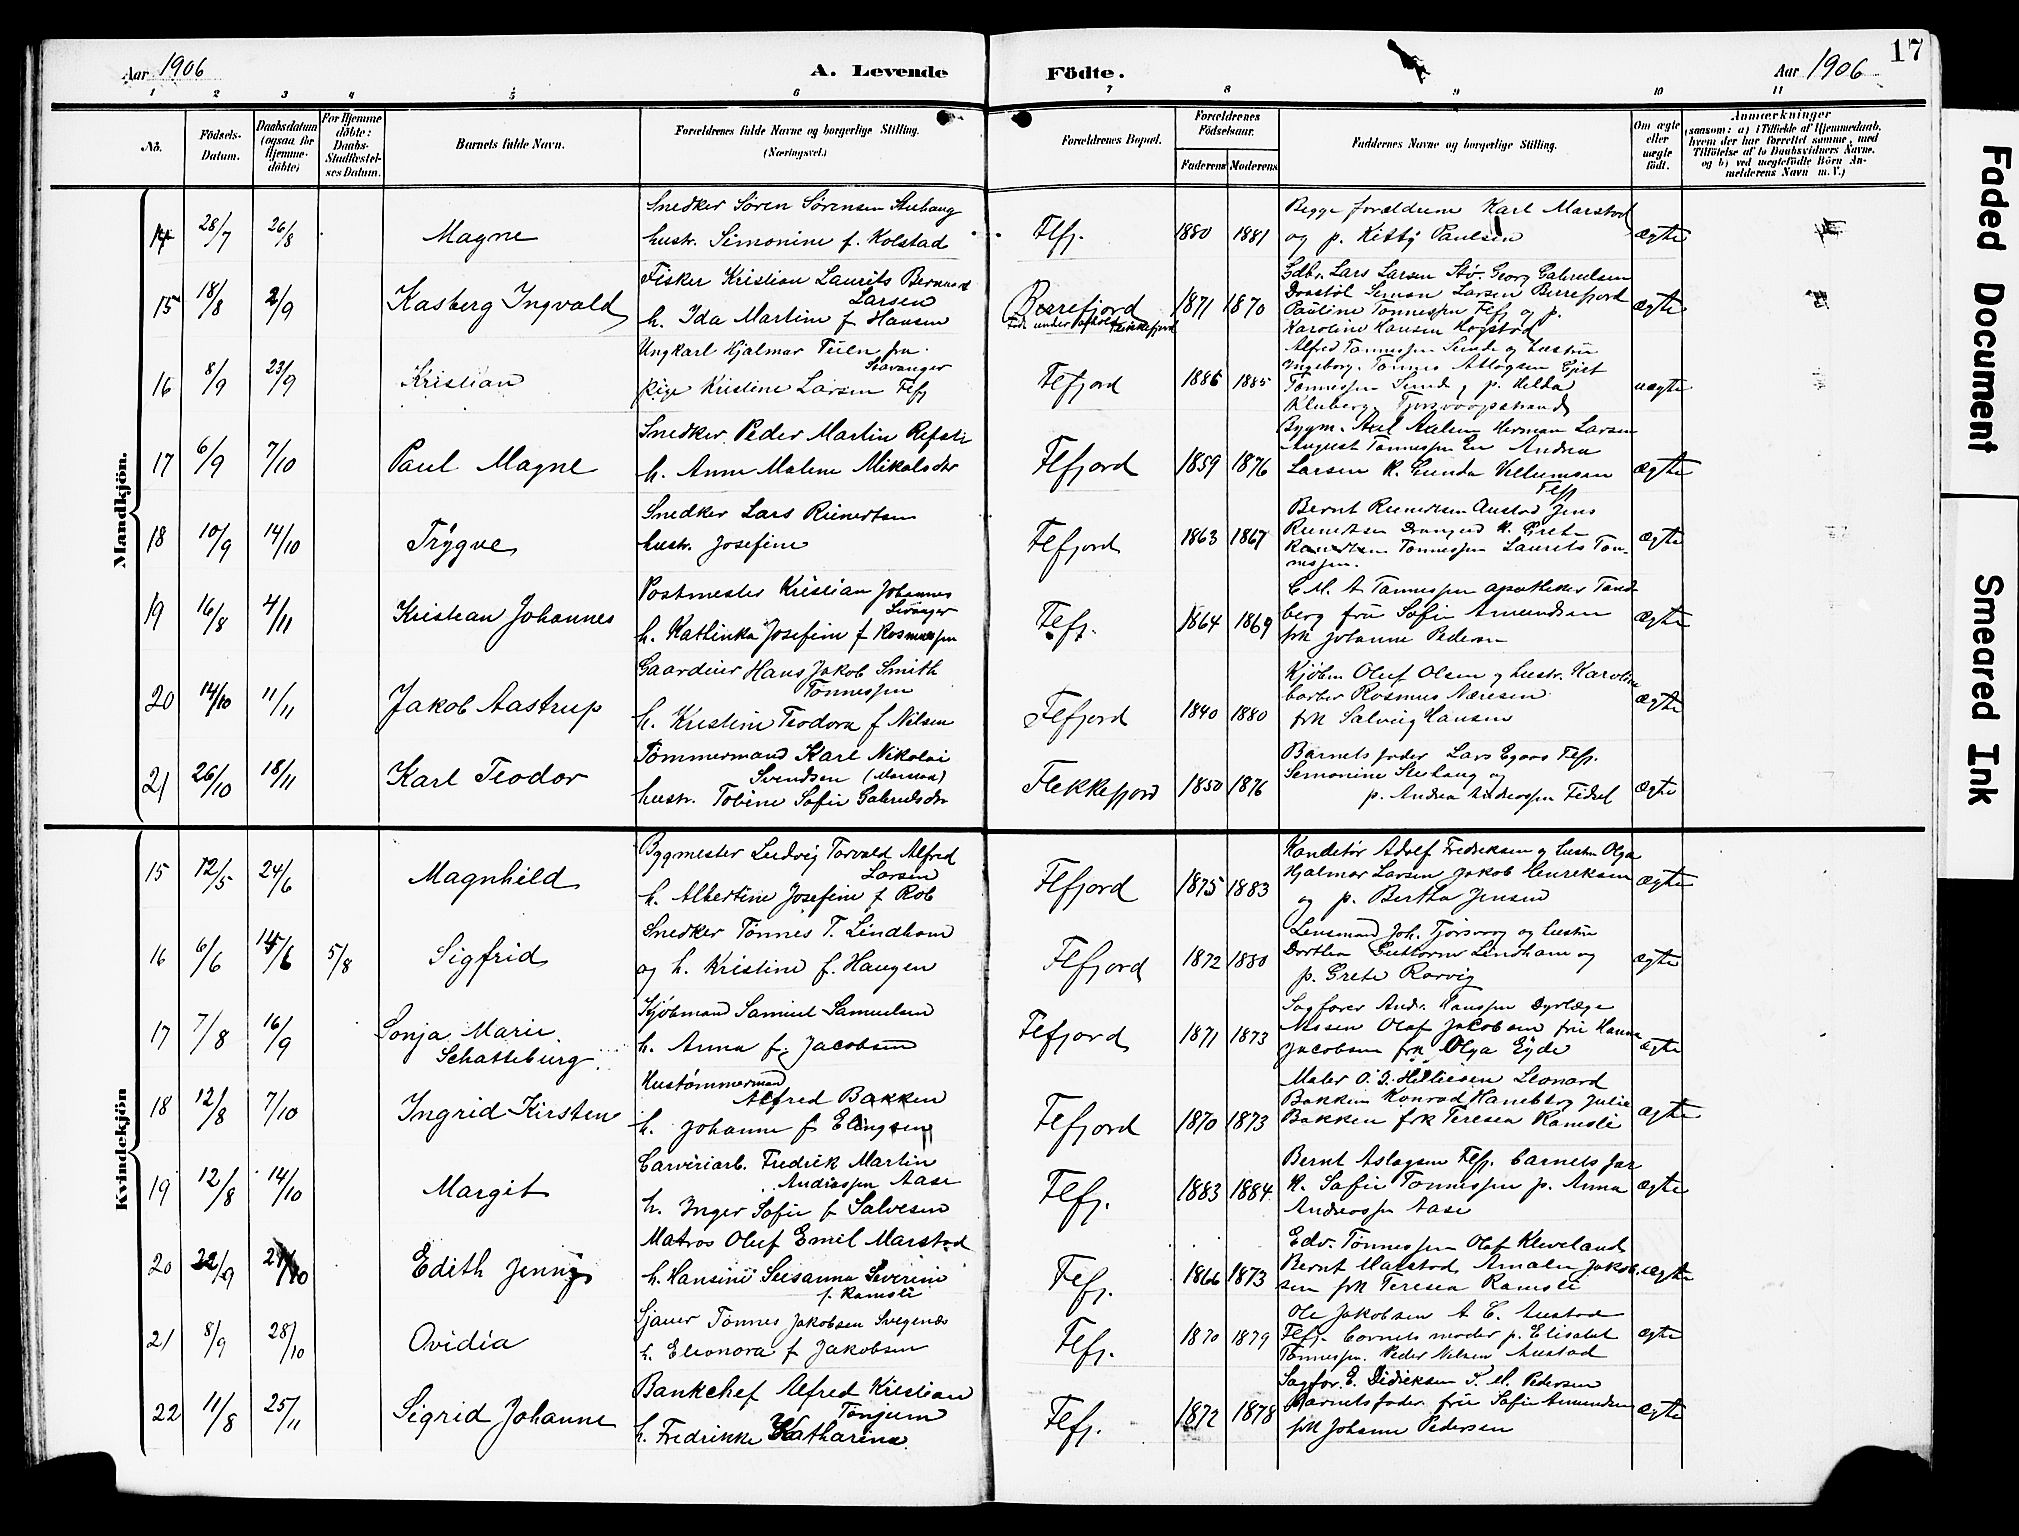 17
Aar 1906
A. Levende Födte.
Aar 1906
1 2 3 4 5 6 7 8 9 10 11
No.
Födsels-Datum.
Daabsdatum (ogsaa for Hjemme-döbte)
For Hjemme döbte: Daabs-Stadfæstel-ses Datum.
Barnets fulde Navn.
Forældrenes fulde Navne og borgerlige Stilling.
(Næringsvei.)
Forældrenes Bopæl.
Forældrenes Födselsaar.
Faderens Moderens
Faddernes Navne og borgerlige Stilling.
Om ægte eller uægte födt.
Anmærkninger
(saasom: a) i Tilfælde af Hjemmedaab,
hvem der har forrettet samme, med
Tilföielse af to Daabsvidners Navne.
og b) ved uægtefödte Börn An-
melderens Navn m. V.)
Mandkjön.
14 28/7 26/8 Magne
Snedker Sören Sörensen Stuhaug
hustr. Simonine f. Kolstad
Flfj. 1880 1881
Begge forældrene Karl Marstad
og p. Kitty Paulsen
ægte
15 18/8 2/9 Kasberg Ingvald
Fisker Kristian Laurits Bernard
Larsen
h. Ida Martine f Hansen
Berrefjord
1871 1870
Gdbr. Lars Larsen Georg Gabrielsen
Simon Larsen Berrefjord
Pauline Tönnessen Flfj og p.
Karoline Hansen Hogstad
ægte
16 8/9 23/9 Kristian
Ungkarl Hjalmar fra
Stavanger
pige Kristine Larsen Flfj
Flfjord 1886 1885
Alfred Tönnessen Sunde og hustru
Ingeborg. Tönnes Atlogsen
Tönnessen Sunde p. Hilda
uægte
17 6/9 7/10 Paul Magne
Snedker Peder Martin Refsti
h. Anne Malene Mikalsdtr
Flfjord 1859 1876
Bygm. Herman Larsen
August Tönnessen Andrea
Larsen K. Gunda Villumsen
Flfj
ægte
18 10/9 14/10 Trygve
Snedker Lars Reinertsen
hustr. Josefine
Flfjord 1863 1867
Bernt Reinertsen Austad Jens
Reinertsen Grete
Tönnessen Laurits Tön-
nessen.
ægte
19 16/8 4/11 Kristian Johannes
Postmester Kristian Johannes
h. Kathinka Josefine f Rosmussen
Flfj. 1864 1869
C. M. A Tönnessen apotheker Tand
berg fru Sofie Amundsen
frk Johanne Pedersen
ægte
20 14/10 11/11 Jakob Aastrup
Gaardeier Hans Jakob Smith
Tönnessen
h. Kristine Teodora f Nilsen
Flfjord 1840 1880
Kjöbm Oluf Olsen og hustr. Karoline
barber Rosmus
frk Salveig Hansen
ægte
21 26/10 18/11 Karl Teodor
Tömmermand Karl Nikolai
Svendsen
hustr. Tobine Sofie Gabrielsdtr
Flekkefjord 1850 1876
Barnets fader Lars Egaas Flfj.
Simonine Stuhaug og
p. Andrea Andreassen
ægte
Kvindekjön
15 12/5 24/6 Magnhild
Bygmester Ludvig Torvald Alfred
Larsen
h. Albertine Josefine f Rob
Flfjord 1875 1883
Kondetör Adolf Fredriksen og hustru Olga
Hjalmar Larsen Jakob Henriksen
og p. Bertha Jensen
ægte
16 6/6 15/6 5/8 Sigfrid
Snedker Tönnes T. Lindham
og h. Kristine f. Haugen
Flfjord 1872 1880
Lensmand Joh. Tjorsvaag og hustru
Dorthea Guttorm Lindham og
p. Grete Rorvig
ægte
17 7/8 16/9 Sonja Marie
Schatteburg
Kjöbmand Samuel Samuelsen
h. Anna f. Jacobsen
Flfjord 1871 1873
Sagförer Andr. Hanssen Dyrlæge
Olaf Jakobsen fru Hanna
Jacobsen frk Olga Eyde
ægte
18 12/8 7/10 Ingrid Kirsten
Hustömmermand
Alfred Bakken
h. Johanne f Elingsen
Flfjord 1870 1873
Maler O. J. Leonard
Bakken Konrad Haneberg Julie
Bakken frk Teresea Ramsli
ægte
19 12/8 14/10 Margit
Garveriarb. Fredrik Martin
Andreassen Aase
h. Inger Sofie f Salvesen
Flfj. 1883 1884
Bernt Aslagsen Flfj. barnets far
K. Sofie Tönnessen p. Anna
Andreassen Aase
ægte
20 22/9 Edith Jenny
Matros Oluf Emil Marstad
h. Hansine Susanna Severine
f. Ramsli
Flfj. 1866 1873
Edv. Tönnessen Olaf Kleveland
Bernt Marstad Amalie Jakob-
sen frk Teresea Ramsli
ægte
21 8/9 28/10 Ovidia
Sjauer Tönnes Jakobsen Svegenæs
h. Eleonora f Jakobsen
Flfj. 1870 1879
Ole Jakobsen A. C. Austad
Flfj. barnets moder p. Elisabet
Tönnessen. Peder Nilsen Austad
ægte
22 11/8 25/11 Sigrid Johanne
Bankchef Alfred Kristian
Tönjum
h. Fredrinke Katharina
Flfj. 1872 1878
Sagför. E. Didriksen P. M. Pedersen
Barnets fader fru Sofie Amundsen
frk Johanne Pedersen
ægte
Faded Document
Smeared Ink